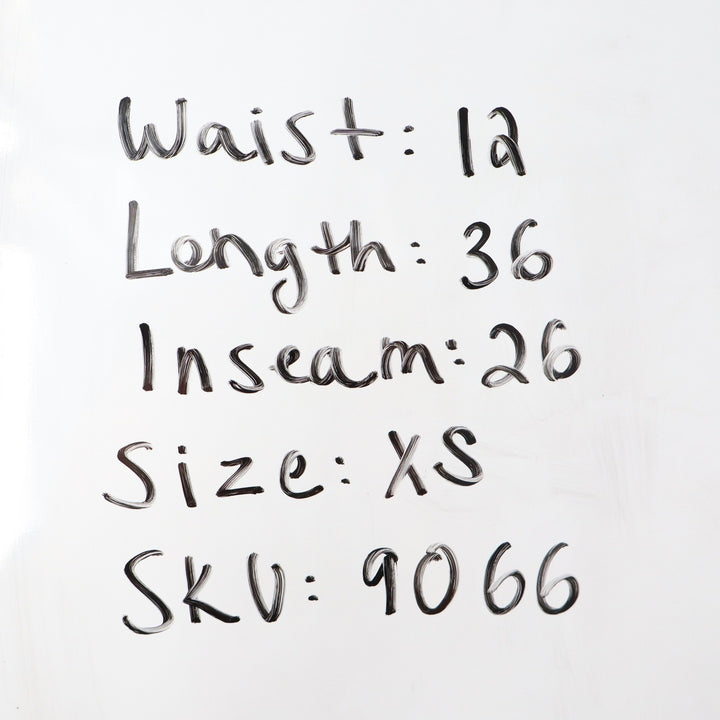 Waist: 12
Length: 36
Inseam: 26
Size: XS
SKU: 9066